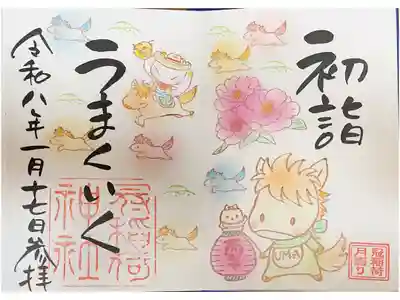 初詣
うまくいく
令和八年一月十七日参拝
冠稲荷
神社
UMA
冠稲荷
月参り